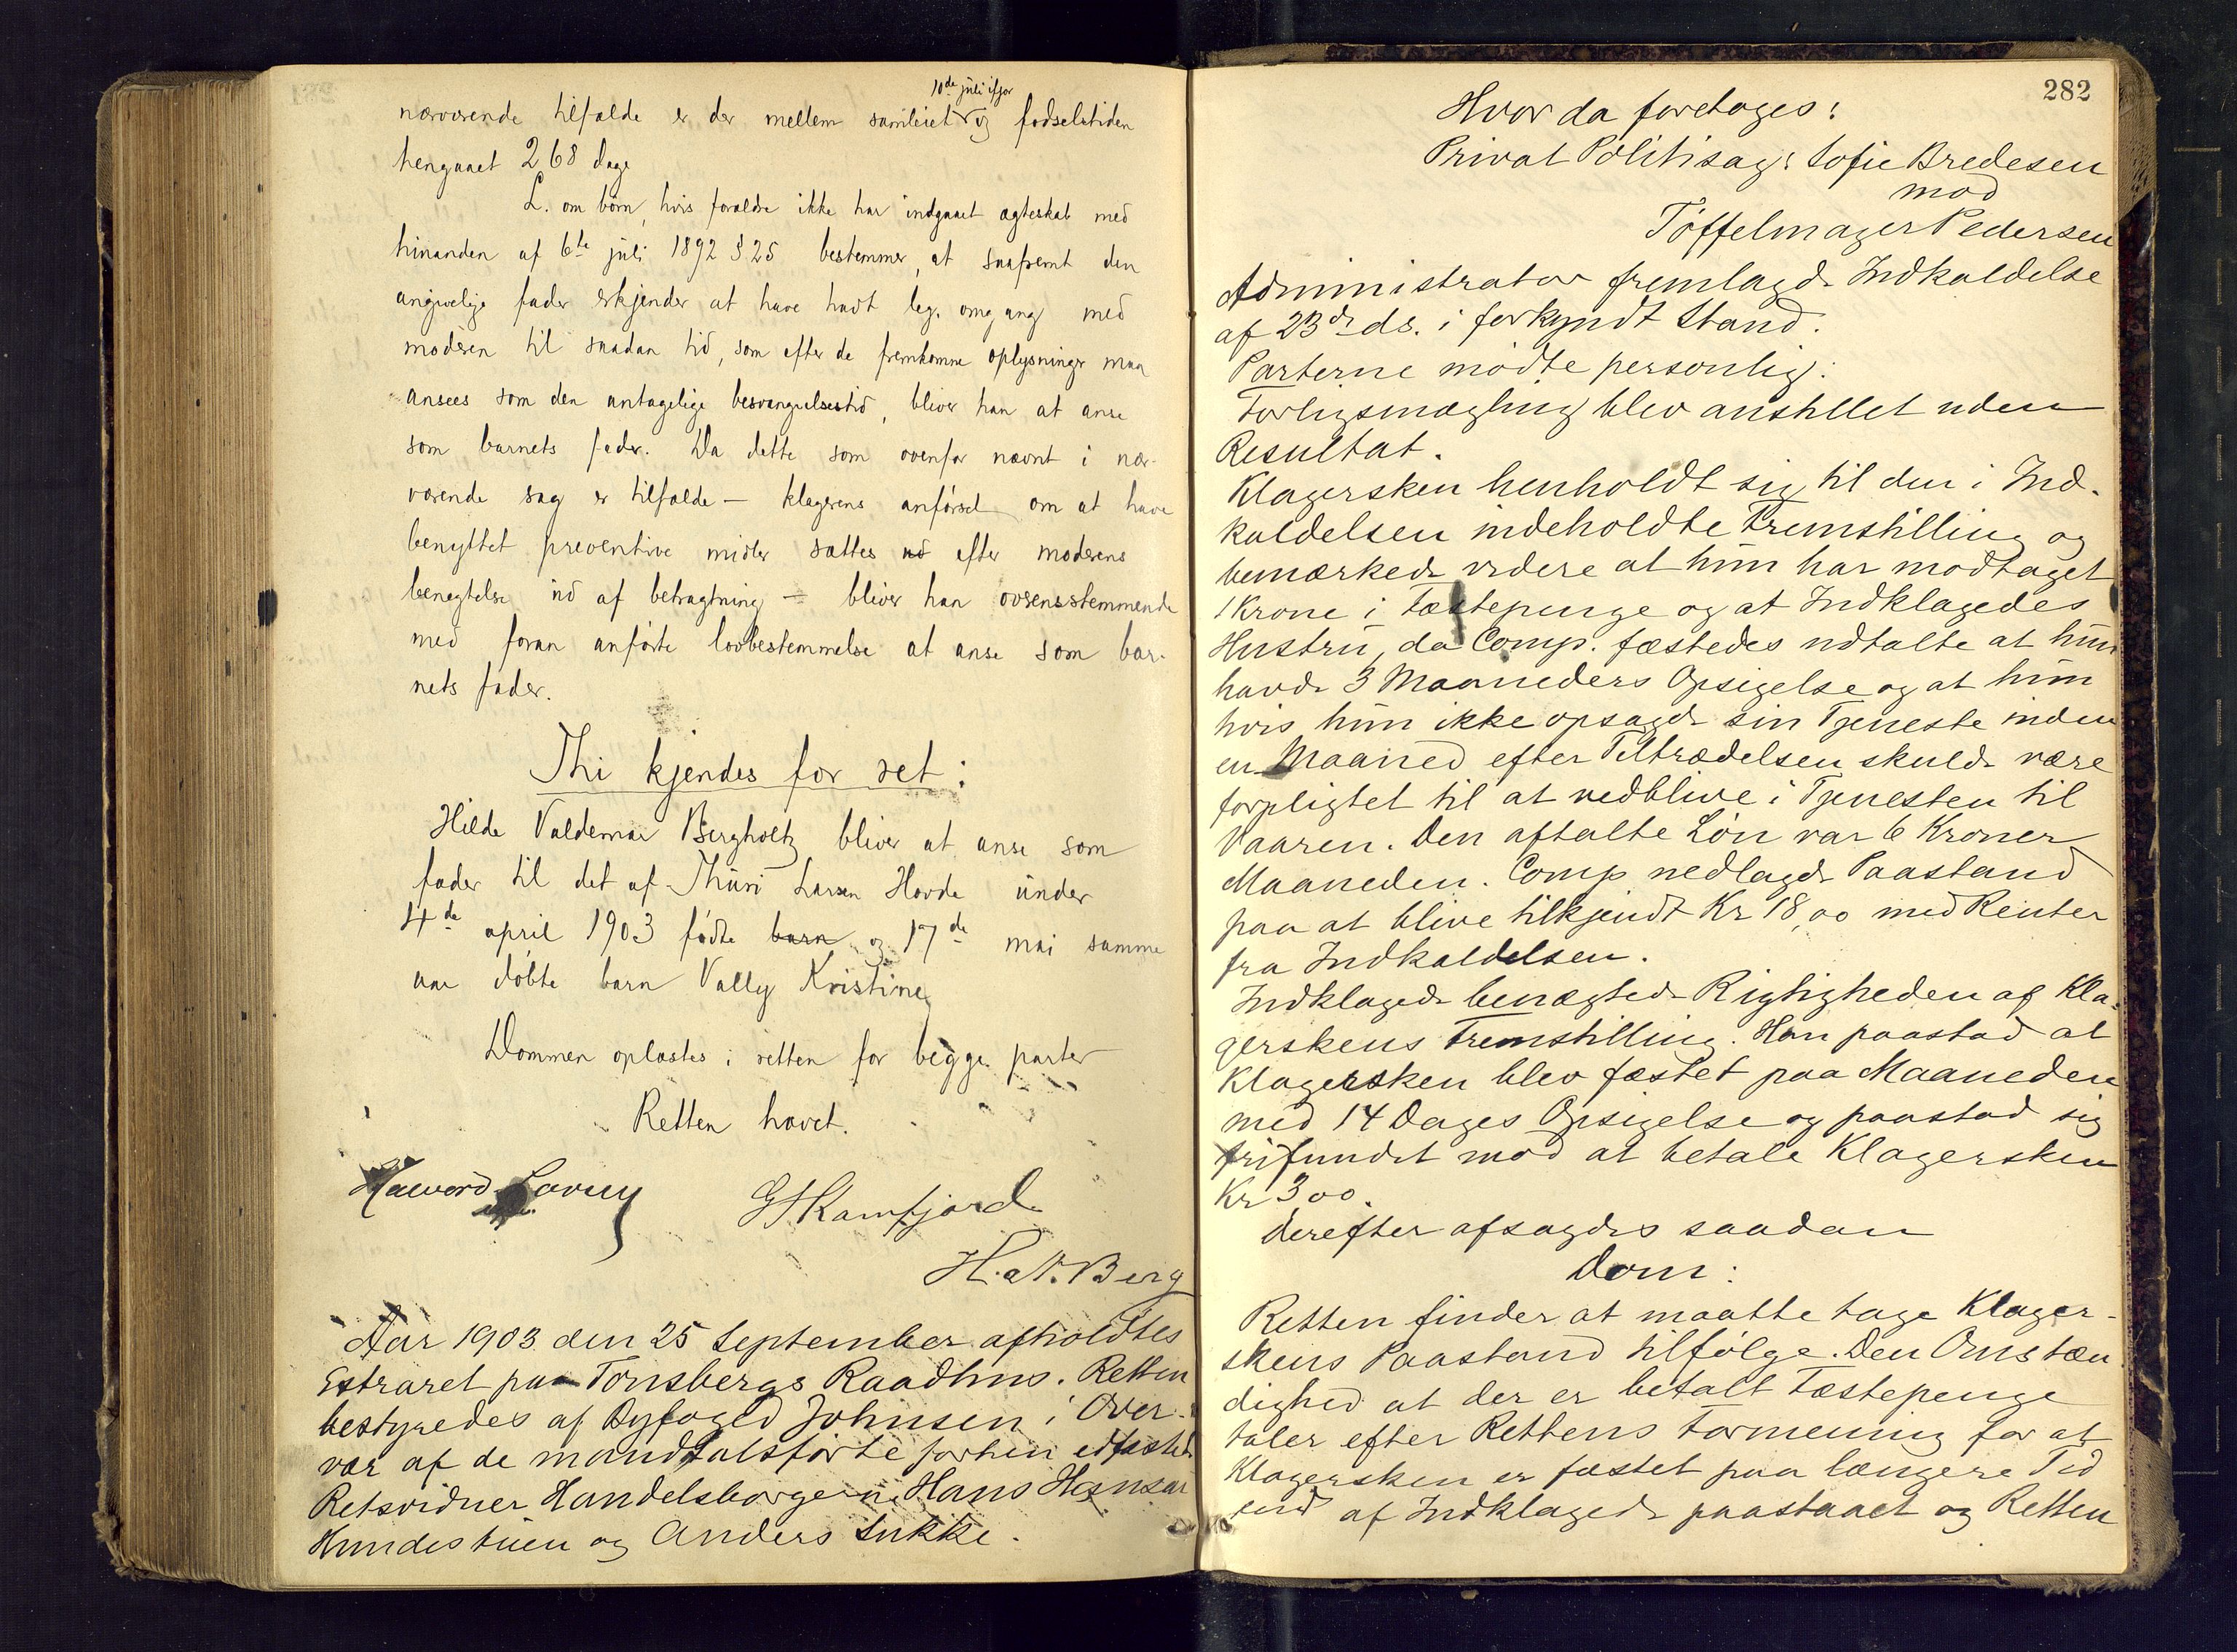 10de juli ifjor
nærværende tilfælde er der mellem samleiet og fødselstiden
hengaaet 268 dage
L. om børn, hvis forældre ikke har indgaaet ægteskab med
hinanden af 6te juli 1892 § 25 bestemmer, at saafremt den
angivelige fader erkjender at have havt leg. omgang med
moderen til saadan tid, som efter de fremkomne oplysninger maa
ansees som den antagelige besvangrelsestid, bliver han at anse
som barnets fader. Da dette som ovenfor nævnt i nær-
værende sag er tilfælde – klagerens anførsel om at have
benyttet preventive midler sættes ud efter moderens
benegtelse ud af betragtning – bliver han overensstemmende
med foran anførte lovbestemmelse at anse som bar-
nets fader.
Thi kjendes for ret:
Hilde Valdemar Bergholtz bliver at anse som
fader til det af Thuri Larsen Hovde under
4de april 1903 fødte barn og 17de mai samme
aar døbte barn Vally Kristine
Dommen oplæstes i retten for begge parter
Retten hævet.
G Kamfjord
H. A. Berg
Aar 1903 den 25 September afholdtes
Extraret paa Tønsbergs Raadhus. Retten
bestyredes af Byfoged Johnsen i Over-
vær af de mandtalsførte forhen edfæstede
Retsvidner Handelsborgerne Hans Hansen
Hundestuen og Anders Sukke.
282
Hvor da foretoges:
Privat Politisag: Sofie Bredesen
mod
Tøffelmager Pedersen
Administrator fremlagde Indkaldelse
af 23de ds. i forkyndt Stand.
Parterne mødte personlig.
Forligsmægling blev anstillet uden
Resultat.
Klagersken henholdt sig til den i Ind-
kaldelsen indeholdte Fremstilling og
bemærkede videre at hun har modtaget
1 Krone i Fæstepenge og at Indklagedes
Hustru, da Comp. fæstedes udtalte at hun
havde 3 Maaneders Opsigelse og at hun
hvis hun ikke opsagde sin Tjeneste inden
en Maaned efter Tiltrædelsen skulde være
forpligtet til at vedblive i Tjenesten til
Vaaren. Den aftalte Løn var 6 Kroner
Maaneden. Comp nedlagde Paastand
paa at blive tilkjendt Kr 18,00 med Renter
fra Indkaldelsen.
Indklagede benægtede Rigtigheden af Kla-
gerskens Fremstilling. Han paastod at
Klagersken blev fæstet paa Maaneden
med 14 Dages Opsigelse og paastod sig
frifundet mod at betale Klagersken
Kr 3 00.
Derefter afsagdes saadan
Dom:
Retten finder at maatte tage Klager-
skens Paastand tilfølge. Den Omstæn
dighed at der er betalt Fæstepenge
taler efter Rettens Formening for at
Klagersken er fæstet paa længere Tid
end af Indklagede paastaaet og Retten